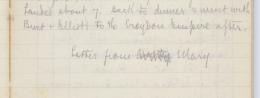 Landed about 7. Back to dinner & went with
Bunt & Elliott to the Croydon Empire after.
Letter from Mary